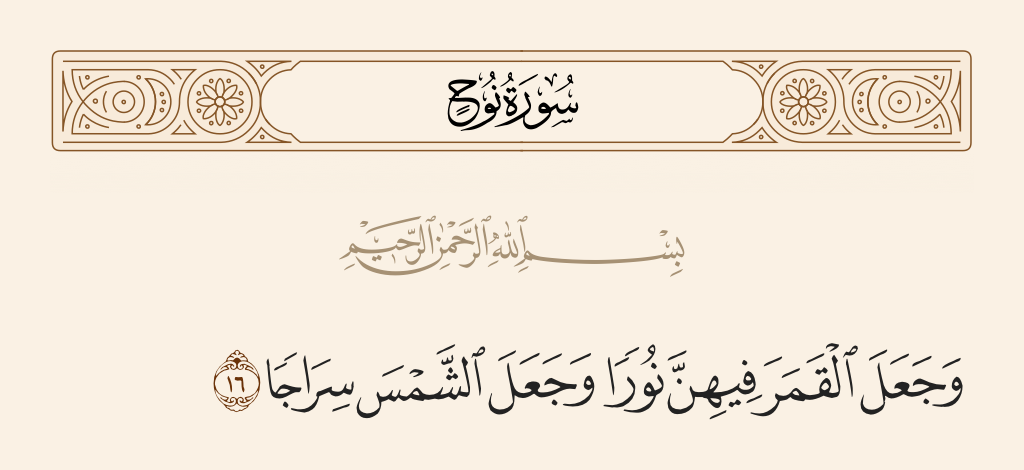 سُورَةُ نُوحٍ
بِسْمِ ٱللَّهِ ٱلرَّحْمَٰنِ ٱلرَّحِيمِ
وَجَعَلَ ٱلْقَمَرَ فِيهِنَّ نُورًا وَجَعَلَ ٱلشَّمْسَ سِرَاجًا ١٦